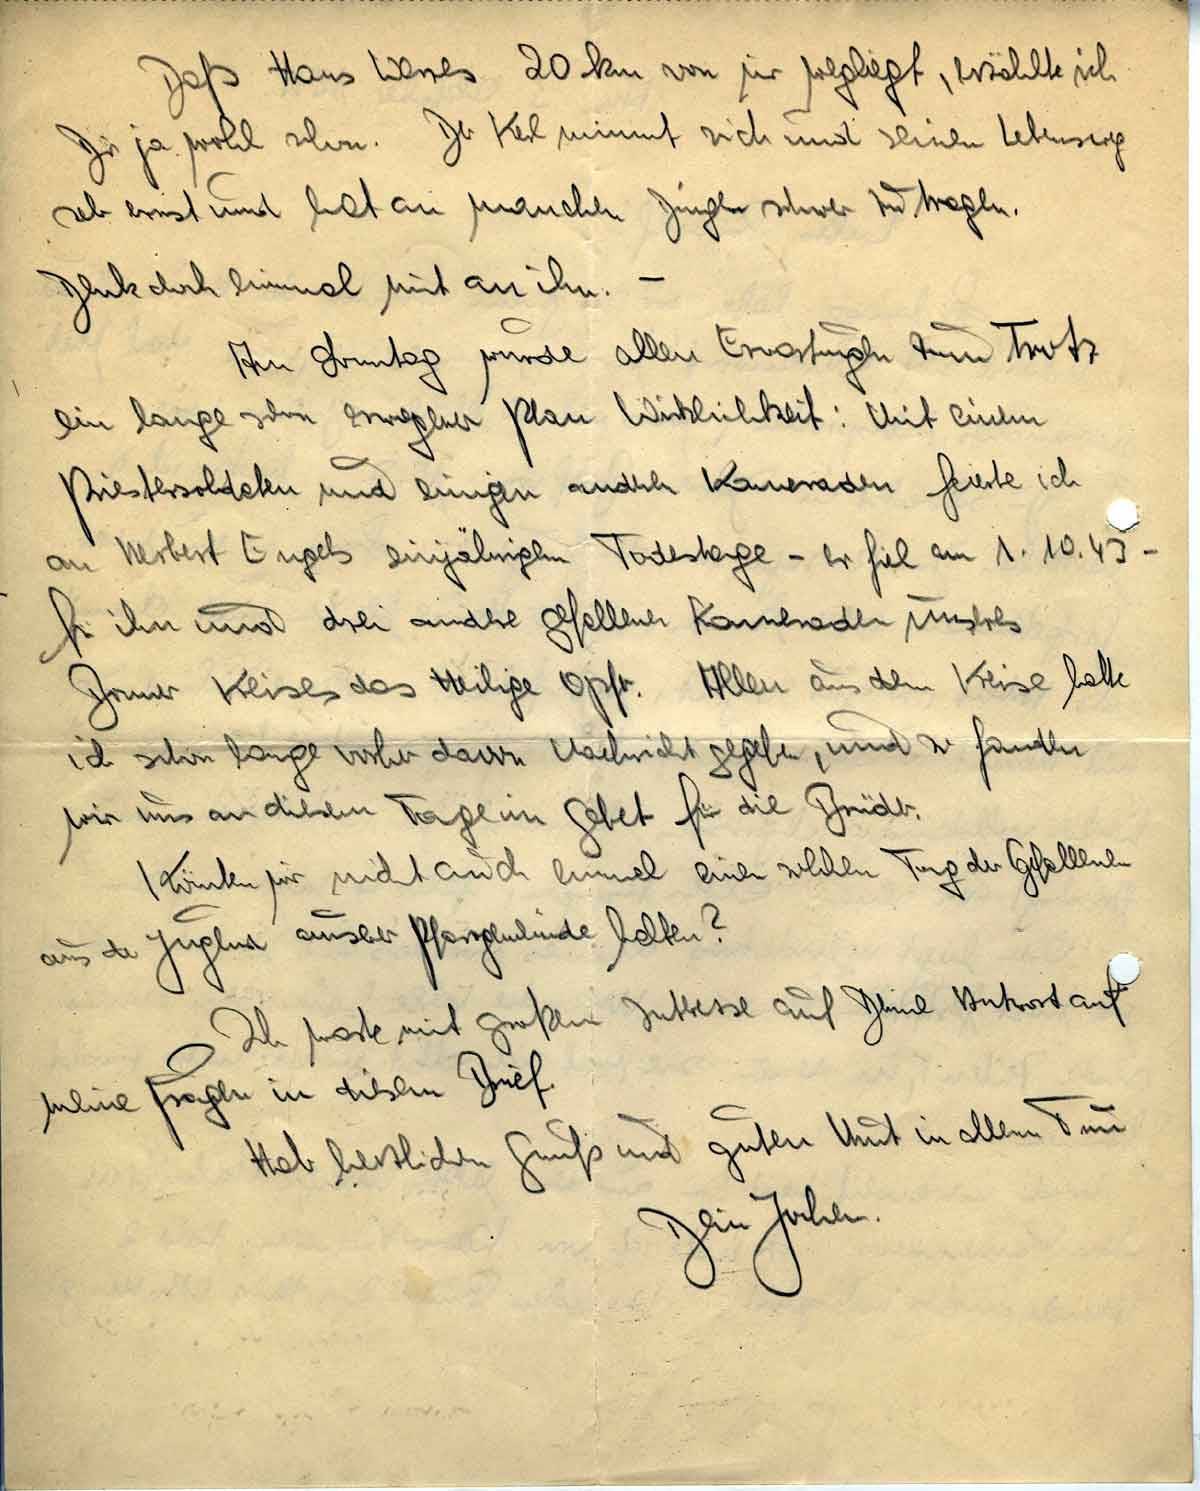 Daß Hans 20 km von mir wegliegt, erzählte ich
Dir ja wohl schon. Der Kerl nimmt sich und seinen Lebensweg
sehr ernst und hat an manchen Dingen schwer zu tragen.
Denk doch einmal mit an ihn. –
Am Sonntag wurde allen Erwartungen zum Trotz
ein lange schon erwogener Plan Wirklichkeit: Mit einem
Priestersoldaten und einigen andren Kameraden feierte ich
an Herbert Engels einjährigem Todestage – er fiel am 1.10.43 –
für ihn und drei andere gefallene Kameraden unsres
Kreises das Heilige Opfer. Allen aus dem Kreise hatte
ich schon lange vorher davon Nachricht gegeben, und so fanden
wir uns an diesem Tage im Gebet für die Brüder.
Könnten wir nicht auch einmal einen solchen Tag der Gefallenen
aus der Jugend unserer Pfarrgemeinde halten?
Ich warte mit großem Interesse auf Deine Antwort auf
meine Fragen in diesem Brief.
Hab herzlichen Gruß und guten Mut in allem Tun
Dein Jochen.